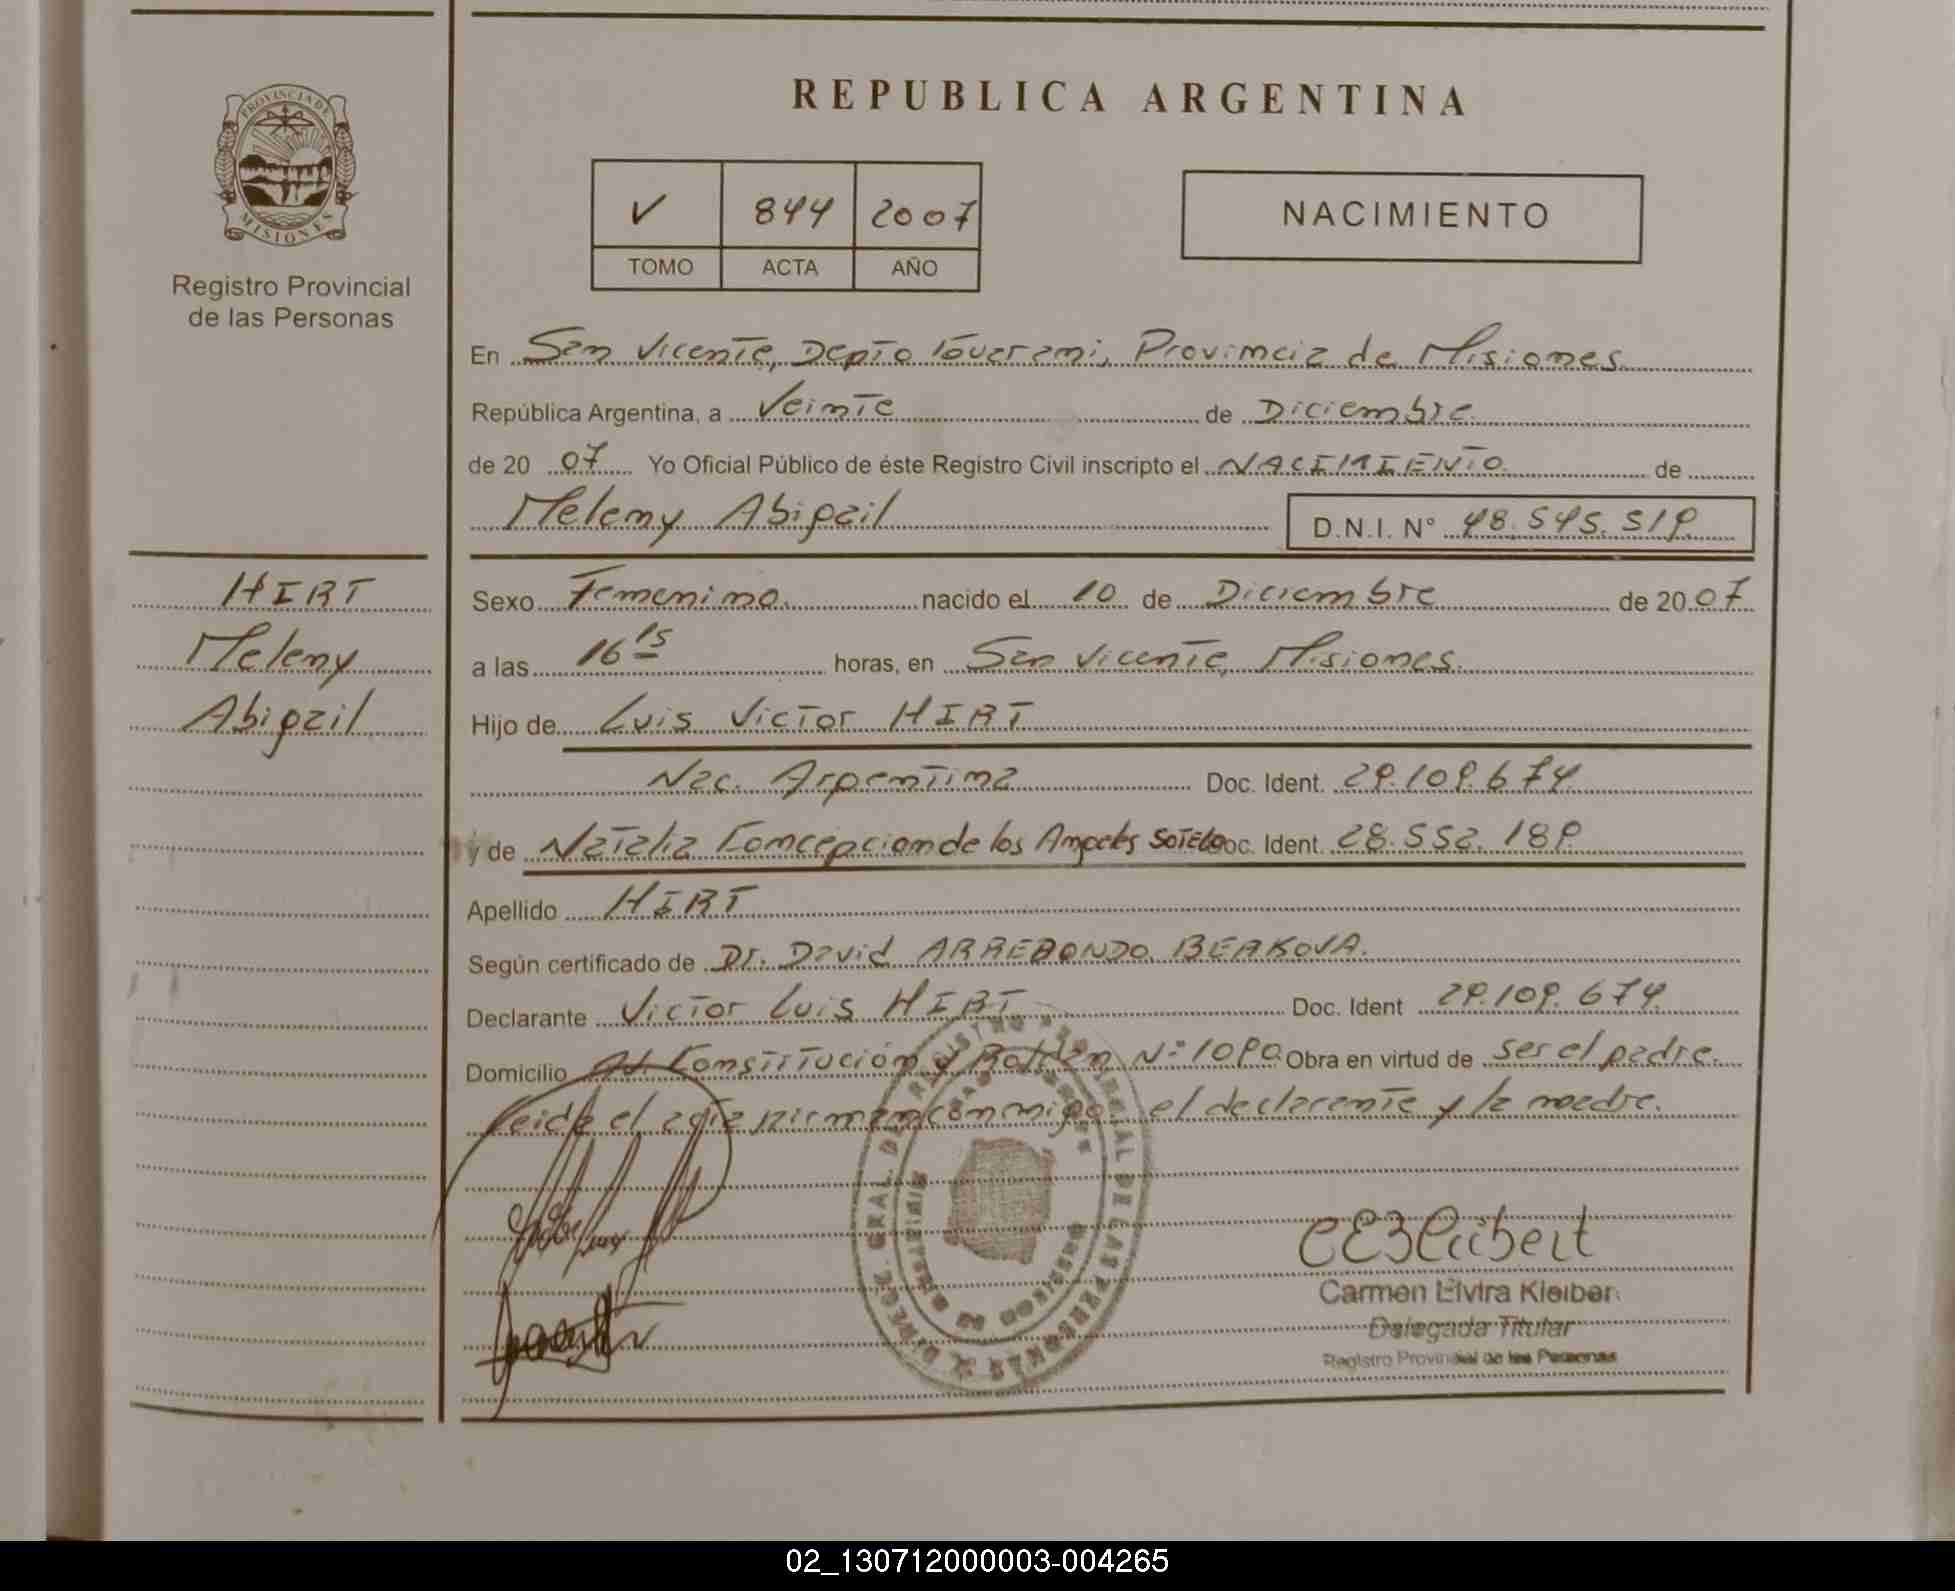 REPUBLICA ARGENTINA
PROVINCIA DE
MISIONES
Registro Provincial
de las Personas
V 844 2007
TOMO ACTA AÑO
NACIMIENTO
En San Vicente, Depto Guarani, Provincia de Misiones
República Argentina, a Veinte de Diciembre
de 20 07 Yo Oficial Público de éste Registro Civil inscripto el NACIMIENTO de
Meleny Abigail D.N.I. N° 48.545.519
HIRT
Meleny
Abigail
Sexo Femenino nacido el 10 de Diciembre de 20 07
a las 16 15 horas, en San Vicente, Misiones.
Hijo de Luis Victor HIRT
Nac. Argentina Doc. Ident. 29.109.674
y de Natalia Concepcion de los Angeles SOTELO Doc. Ident. 28.552.189
Apellido HIRT
Según certificado de Dr. David ARREDONDO BERKOVA.
Declarante Victor Luis HIRT Doc. Ident 29.109.674
Domicilio Av. Constitución y Roldán N° 1090 Obra en virtud de ser el padre.
Leida el acta firman conmigo el declarante y la madre.
Carmen Elvira Kleiber
Delegada Titular
Registro Provincial de las Personas
02_130712000003-004265